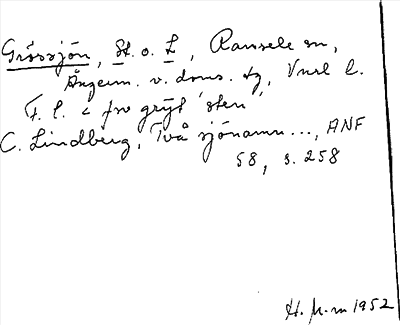 Grössjön, St. o. L, Ramsele sn,
Ångerm. v. doms. tg, Vnrl l.
F. l. < fvo grýt 'sten'
C. Lindberg, Två sjönamn ..., ANF
58, s. 258
H. 1952